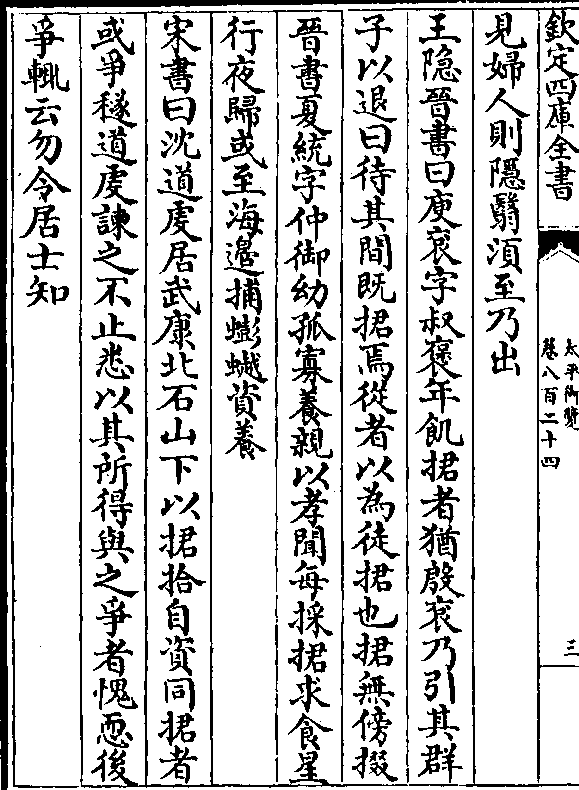 欽定四庫全書
太平御覽
卷八百二十四
三
見婦人則隱翳湏至乃出
王隐晉書曰庾衮字叔褒年飢捃者猶殷衮乃引其群
子以退曰待其間既捃焉從者以為徒捃也捃無傍掇
晉書夏統字仲御幼孤寡養親以孝聞每採捃求食星
行夜歸或至海邉捕蟛蠘資養
宋書曰沈道虔居武康北石山下以捃拾自資同捃者
或爭穟道虔諫之不止悉以其所得與之爭者愧恧後
爭輒云勿令居士知